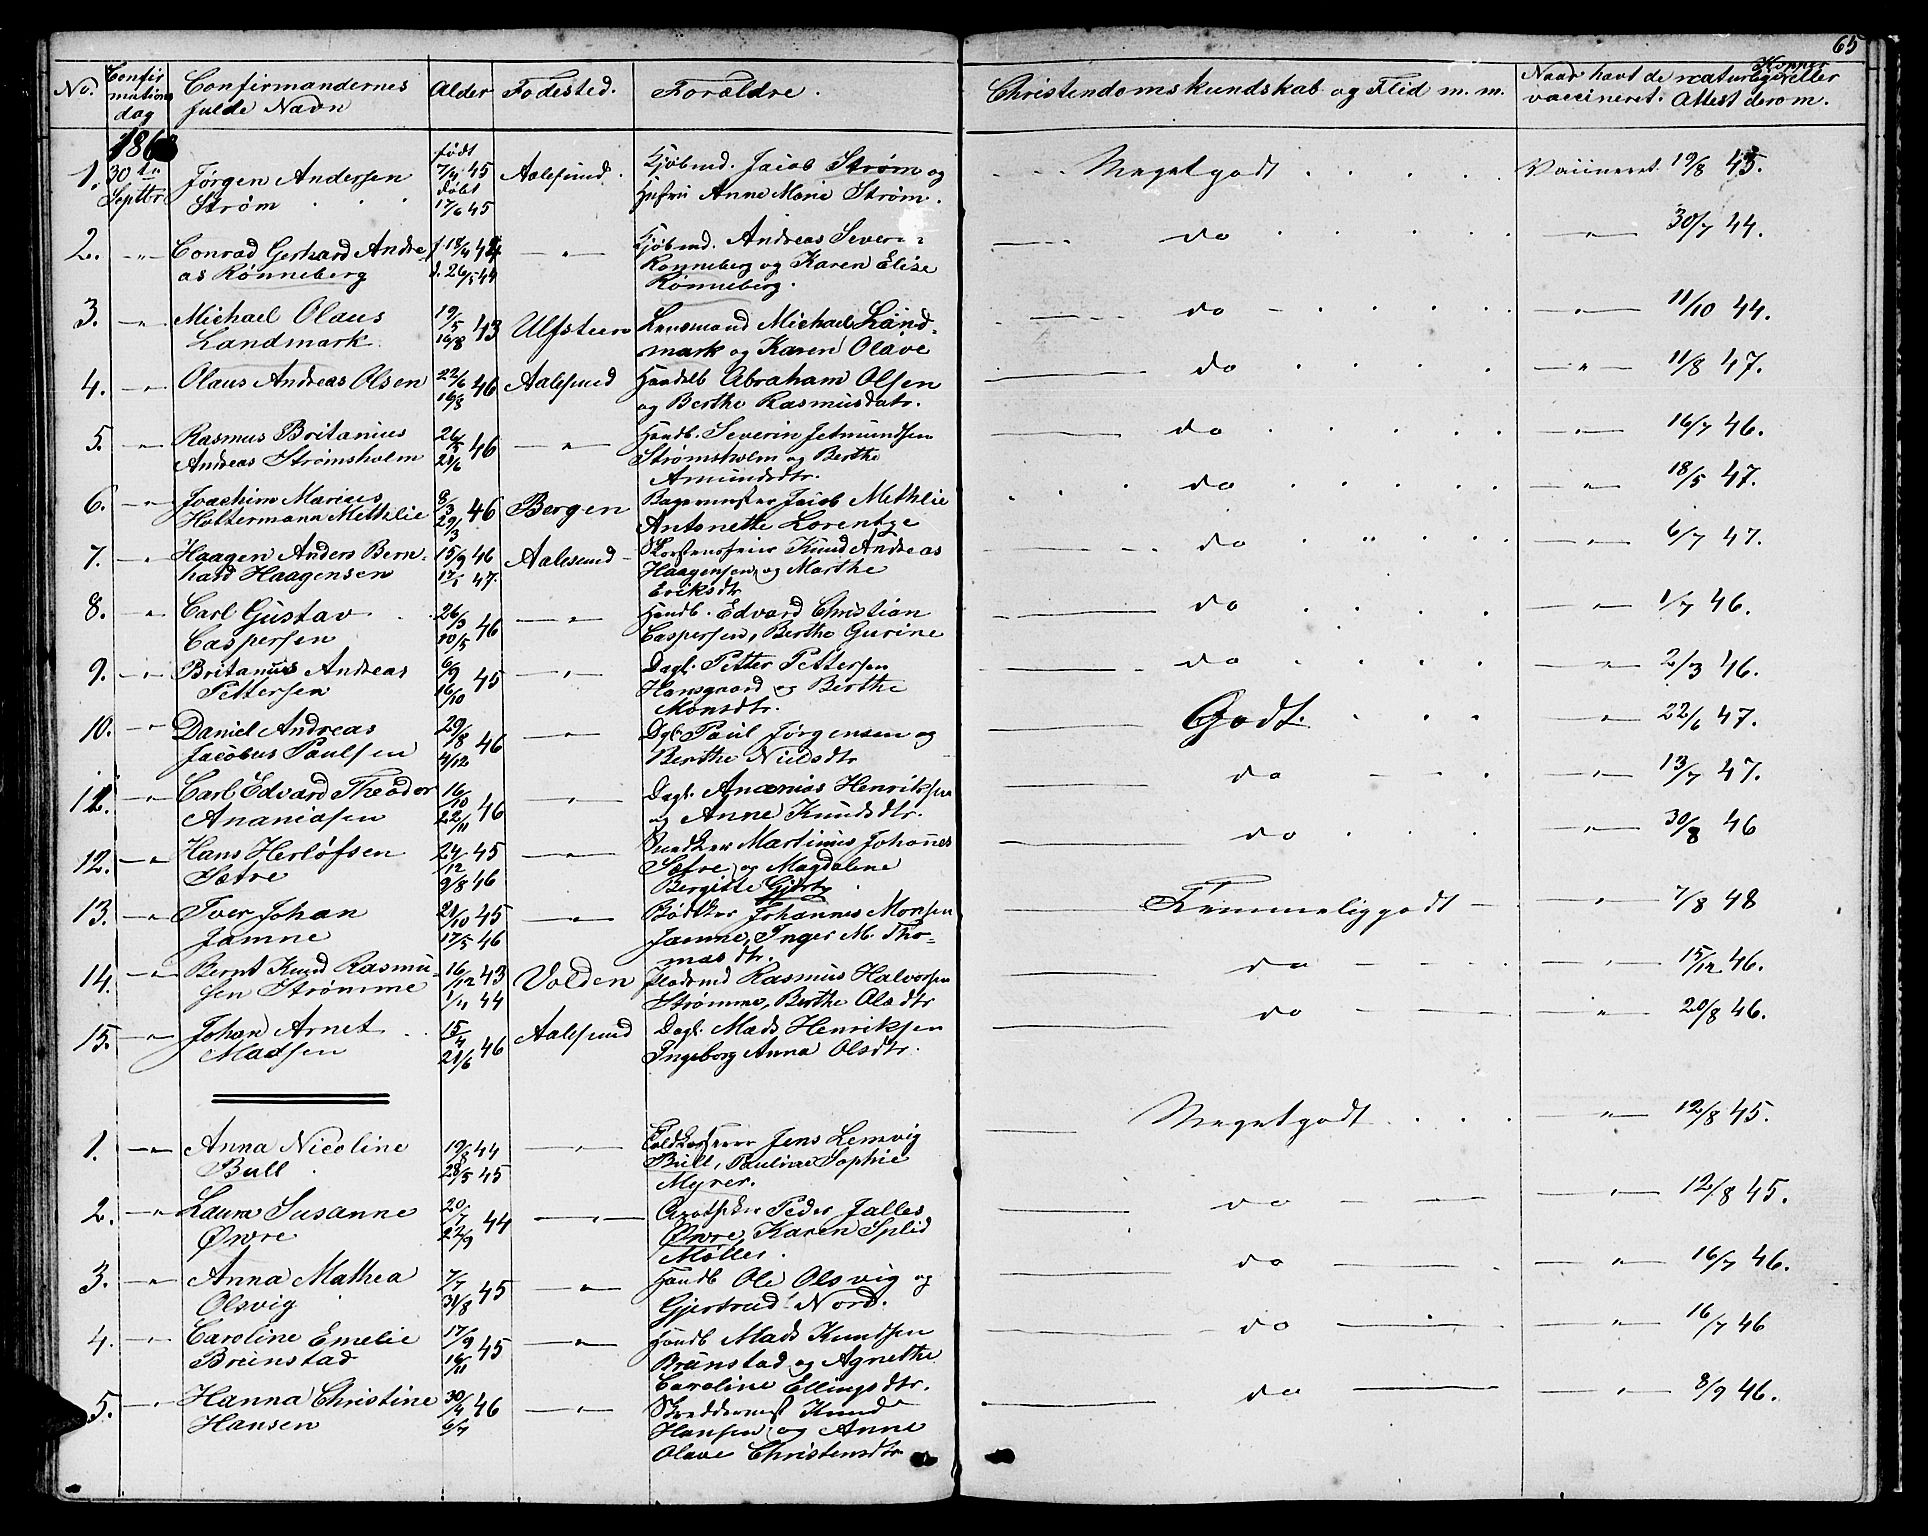 65
No. Confirmations dag Confirmandernes fulde Navn Alder Fødested. Forældre. Christendomskundskab og Flid m. m. Naar havt de naturlige Kopper eller vaccineret. Attest derom.
186
1. 30te Septbr Jørgen Andersen Strøm født 7/4 45 døbt 17/6 45 Aalesund. Kjøbmd. Jacob Strøm og Hufru Anne Marie Strøm. Meget godt Vaccineret 19/8 45.
2. -"- Conrad Gerhard Andreas Rønneberg f. 18/4 44 d. 26/5 44 -"- Kjøbmd. Andreas Severin Rønneberg og Karen Elise Rønneberg. do -"- 30/7 44.
3. -"- Michael Olaus Landmark 19/5 16/8 43 Ulfsteen Lensmand Michael Landmark og Karen Olave do -"- 11/10 44.
4. -"- Olaus Andreas Olsen 22/6 16/8 46 Aalesund Handelb Abraham Olsen og Berthe Rasmusdatr. do -"- 11/8 47.
5. -"- Rasmus Britanius Andreas Strømsholm 21/6 46 -"- Handb. Severin Jetmundsen Strømsholm og Berthe Amundsdtr. do -"- 16/7 46.
6. -"- Joachim Marius Holtermann Methlie 8/3 29/3 46 Bergen Bagermester Jacob Methlie Antonette Lorentze do -"- 18/5 47.
7. -"- Haagen Anders Bernhard Haagensen 15/9 46 17/1 47. Aalesund Skorstensfeier Knud Andreas Haagensen og Marthe Eriksdtr. do -"- 6/7 47.
8. -"- Carl Gustav Caspersen 26/3 10/5 46 -"- Handb. Edvard Christian Caspersen, Berthe Gurine do -"- 1/7 46.
9. -"- Britanus Andreas Pettersen 6/9 16/10 45 -"- Dagl. Petter Pettersen Hansgaard og Berthe Monsdtr. do -"- 2/3 46.
10. -"- Daniel Andreas Jacobus Paulsen 29/8 4/12 46 -"- Dgl. Paul Jørgensen og Berthe Nielsdtr Godt. -"- 22/6 47.
11. -"- Carl Edvard Theodor Ananiasen 16/10 22/11 46 -"- Dagl. Ananias Henriksen og Anne Knudsdtr. do -"- 13/7 47.
12. -"- Hans Herløfsen Sætre 24/12 45 9/8 46 -"- Martinus Johannes Sætre og Magdalene Bergitte do -"- 30/8 46
13. -"- Iver Johan Jamne 21/10 45 17/5 46 -"- Bødtker Johannes Monsen Jamne, Inger M. Thomasdtr. Temmelig godt -"- 7/8 48
14. -"- Bernt Knud Rasmusen Strømme 16/12 43 1/11 44 Volden Rasmus Halvorsen Strømme, Berthe Olsdtr do -"- 15/12 46.
15. -"- Johan Arnet Madsen 15/4 21/6 46 Aalesund Dagl. Mads Henriksen Ingeborg Anna Olsdtr. do -"- 20/8 46.
1. -"- Anna Nicoline Bull 19/8 44 28/5 45 -"- Toldkasserer Jens Lemvig Bull, Pauline Sophie Myrer. Meget godt -"- 12/8 45.
2. -"- Laura Susanne Øwre 20/7 22/9 44 -"- Apotheker Peder Jalles Øwre, Karen Splid Møller. do -"- 12/8 45.
3. -"- Anna Mathea Olsvig 7/7 31/8 45 -"- Handb Ole Olsvig og Gjertrud Nord. do -"- 16/7 46.
4. -"- Caroline Emelie Brunstad 17/9 16/11 45 -"- Handb Mads Knudsen Brunstad og Agnethe Caroline Ellingsdtr. do -"- 16/7 46
5. -"- Hanna Christine Hansen 30/4 6/7 46 -"- Skreddermest Knud Hansen og Anne Olave Christensdtr do -"- 8/9 46.